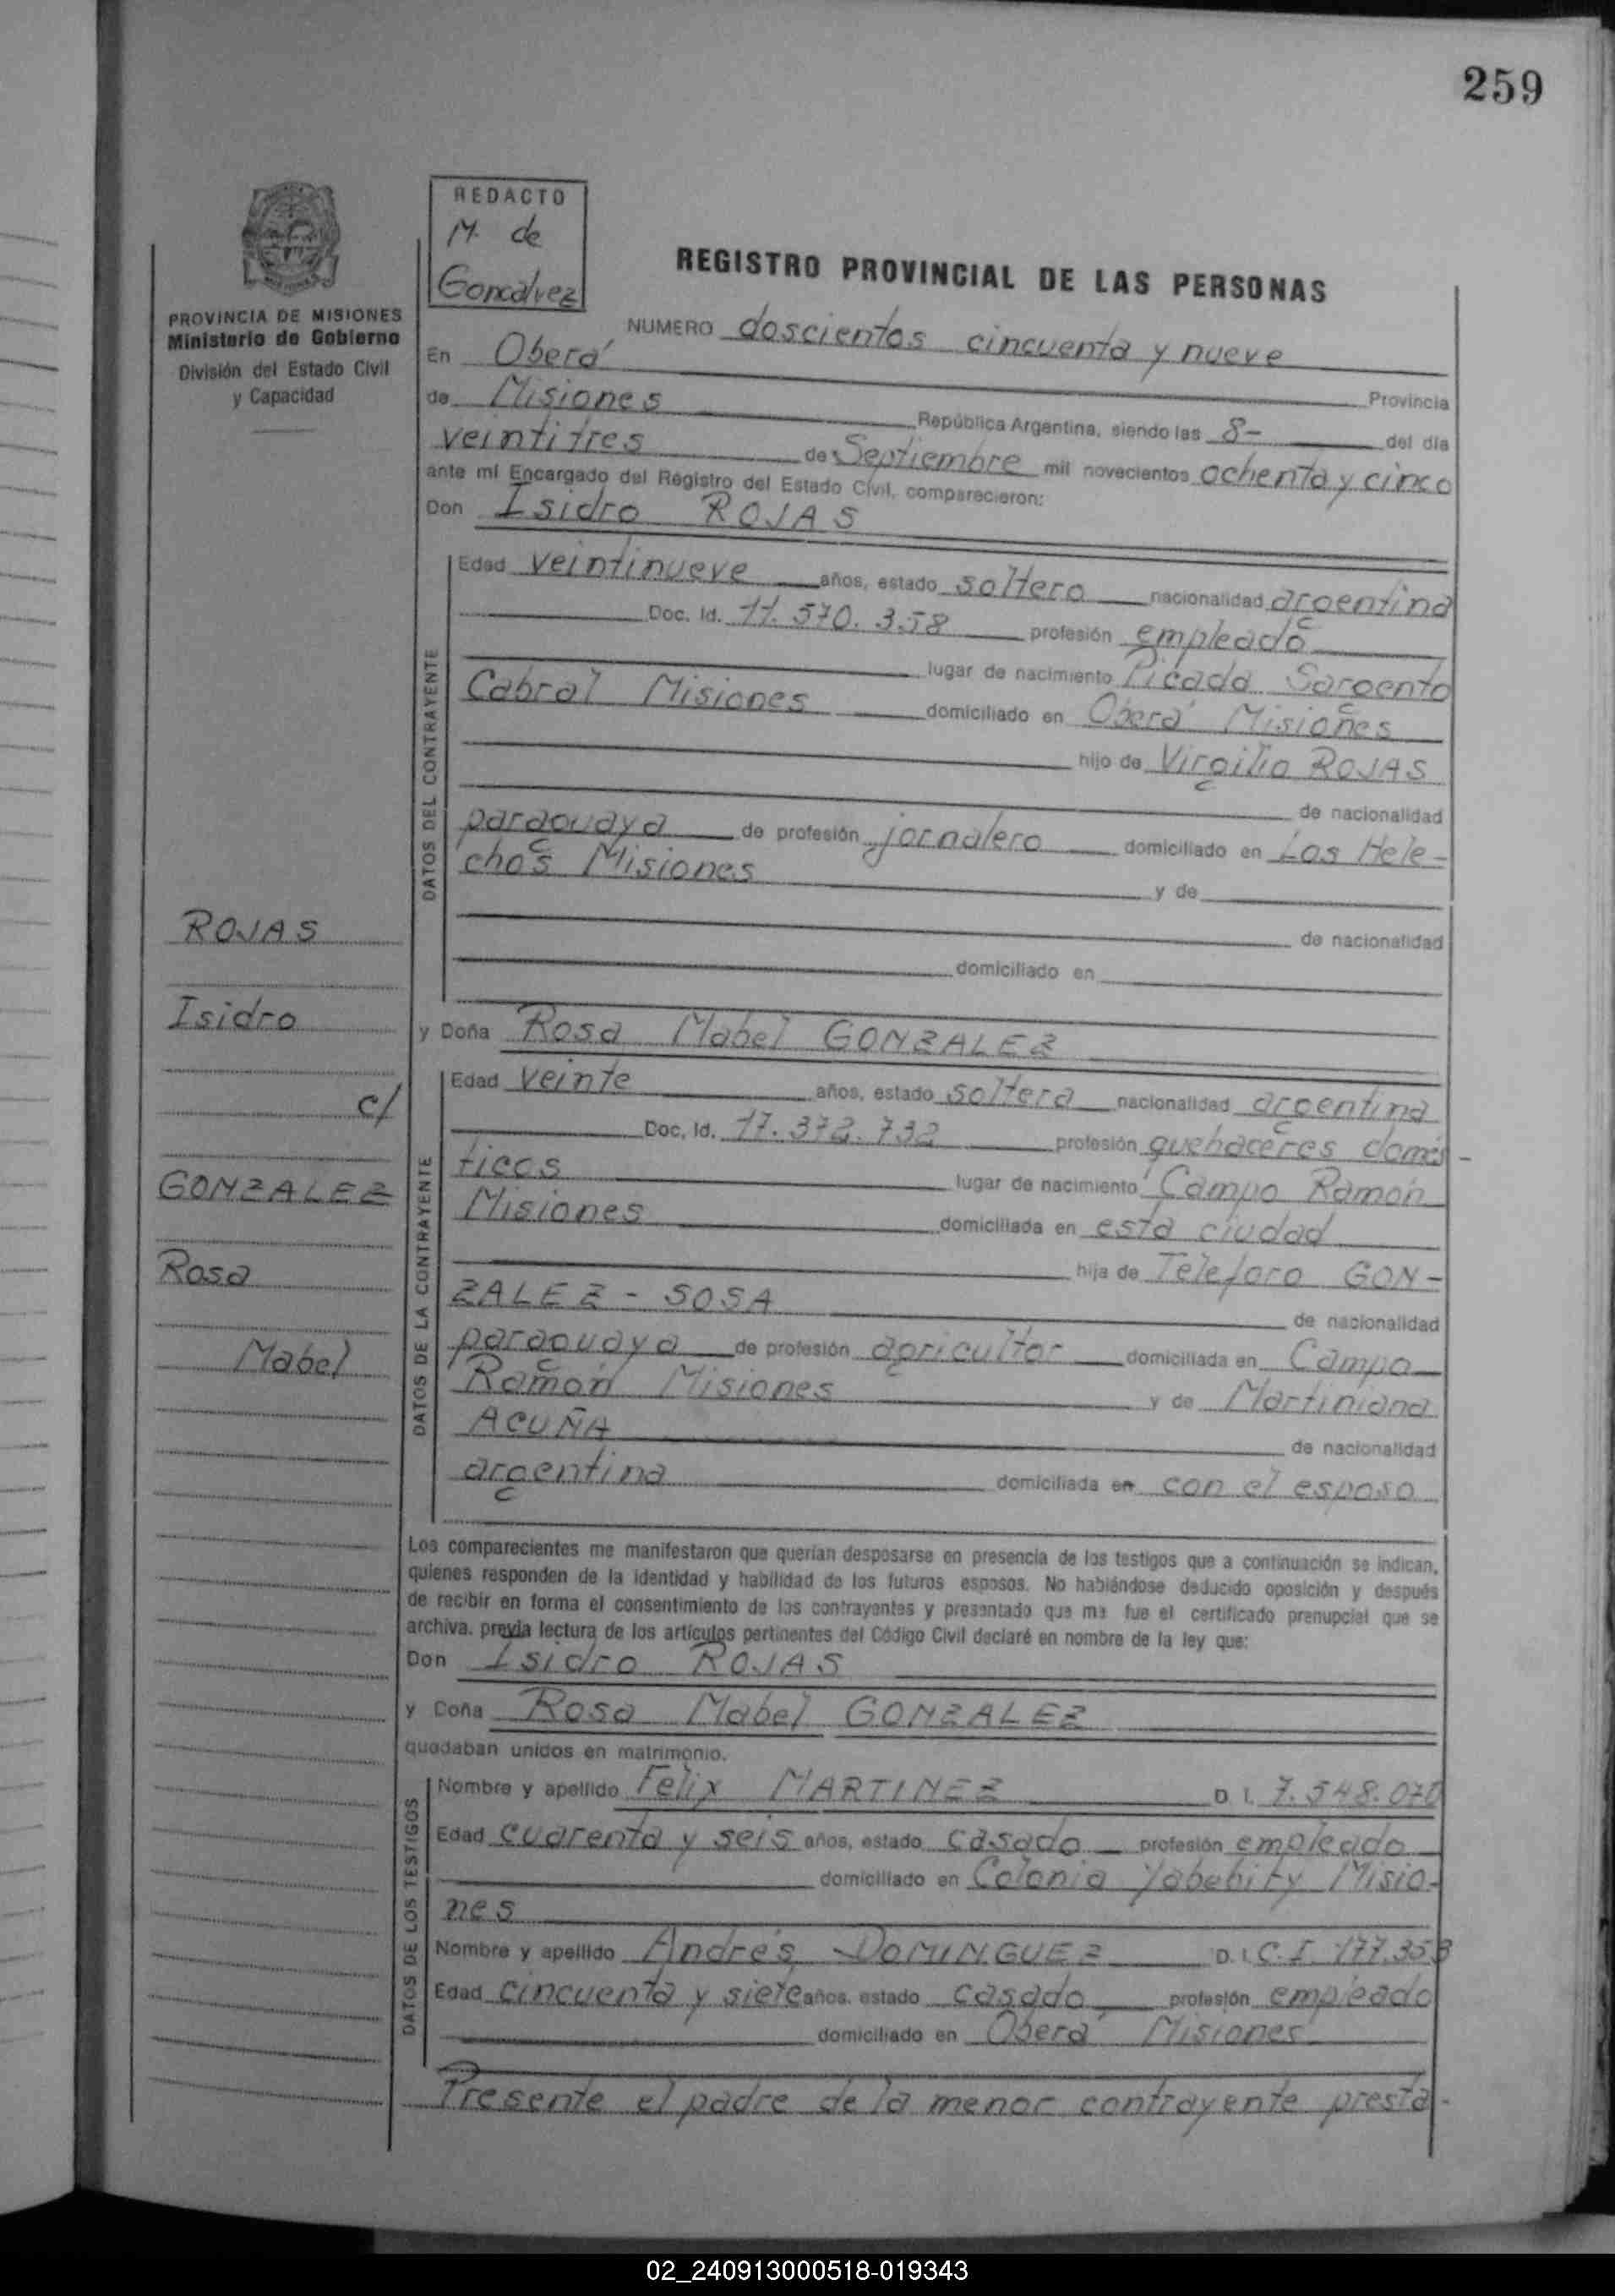 259
REDACTO
M. de
Goncalvez
PROVINCIA DE MISIONES
Ministerio de Gobierno
División del Estado Civil
y Capacidad
REGISTRO PROVINCIAL DE LAS PERSONAS
NUMERO doscientos cincuenta y nueve
En Oberá Provincia
de Misiones República Argentina, siendo las 8- del día
veintitres de Septiembre mil novecientos ochenta y cinco
ante mí Encargado del Registro del Estado Civil, comparecieron:
Don Isidro ROJAS
DATOS DEL CONTRAYENTE
Edad veintinueve años, estado soltero nacionalidad argentina
Doc. Id. 11.570.358 profesión empleado
lugar de nacimiento Picada Sargento
Cabral Misiones domiciliado en Oberá Misiones
hijo de Virgilio ROJAS
de nacionalidad
paraguaya de profesión jornalero domiciliado en Los Hele-
chos Misiones y de
de nacionalidad
domiciliado en
ROJAS
Isidro
c/
GONZALEZ
Rosa
Mabel
y Doña Rosa Mabel GONZALEZ
DATOS DE LA CONTRAYENTE
Edad veinte años, estado soltera nacionalidad argentina
Doc. Id. 17.372.732 profesión quehaceres domés-
ticos lugar de nacimiento Campo Ramón
Misiones domiciliada en esta ciudad
hija de Teleforo GON-
ZALEZ - SOSA de nacionalidad
paraguaya de profesión agricultor domiciliada en Campo
Ramón Misiones y de Martiniana
ACUÑA de nacionalidad
argentina domiciliada en con el esposo
Los comparecientes me manifestaron que querían desposarse en presencia de los testigos que a continuación se indican,
quienes responden de la identidad y habilidad de los futuros esposos. No habiéndose deducido oposición y después
de recibir en forma el consentimiento de los contrayentes y presentado que me fue el certificado prenupcial que se
archiva, previa lectura de los artículos pertinentes del Código Civil declaré en nombre de la ley que:
Don Isidro ROJAS
y Doña Rosa Mabel GONZALEZ
quedaban unidos en matrimonio.
DATOS DE LOS TESTIGOS
Nombre y apellido Felix MARTINEZ D. I. 7.548.070
Edad cuarenta y seis años, estado casado profesión empleado
domiciliado en Colonia Yabebiry Misio-
nes
Nombre y apellido Andrés DOMINGUEZ D. I. C.I. 177.358
Edad cincuenta y siete años, estado casado profesión empleado
domiciliado en Oberá Misiones
Presente el padre de la menor contrayente presta-
02_240913000518-019343